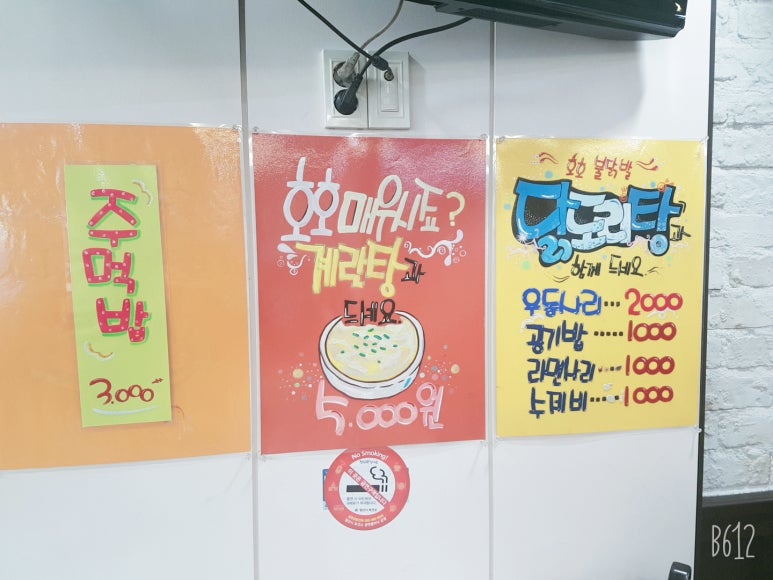 주먹밥
3.000
호호매유시죠?
계란탕과
드세요
5.000원
호호 불닭발
닭도리탕과
함께 드세요
우동사리...2000
공기밥.....1000
라면사리...1000
수제비.....1000
No Smoking!
B612